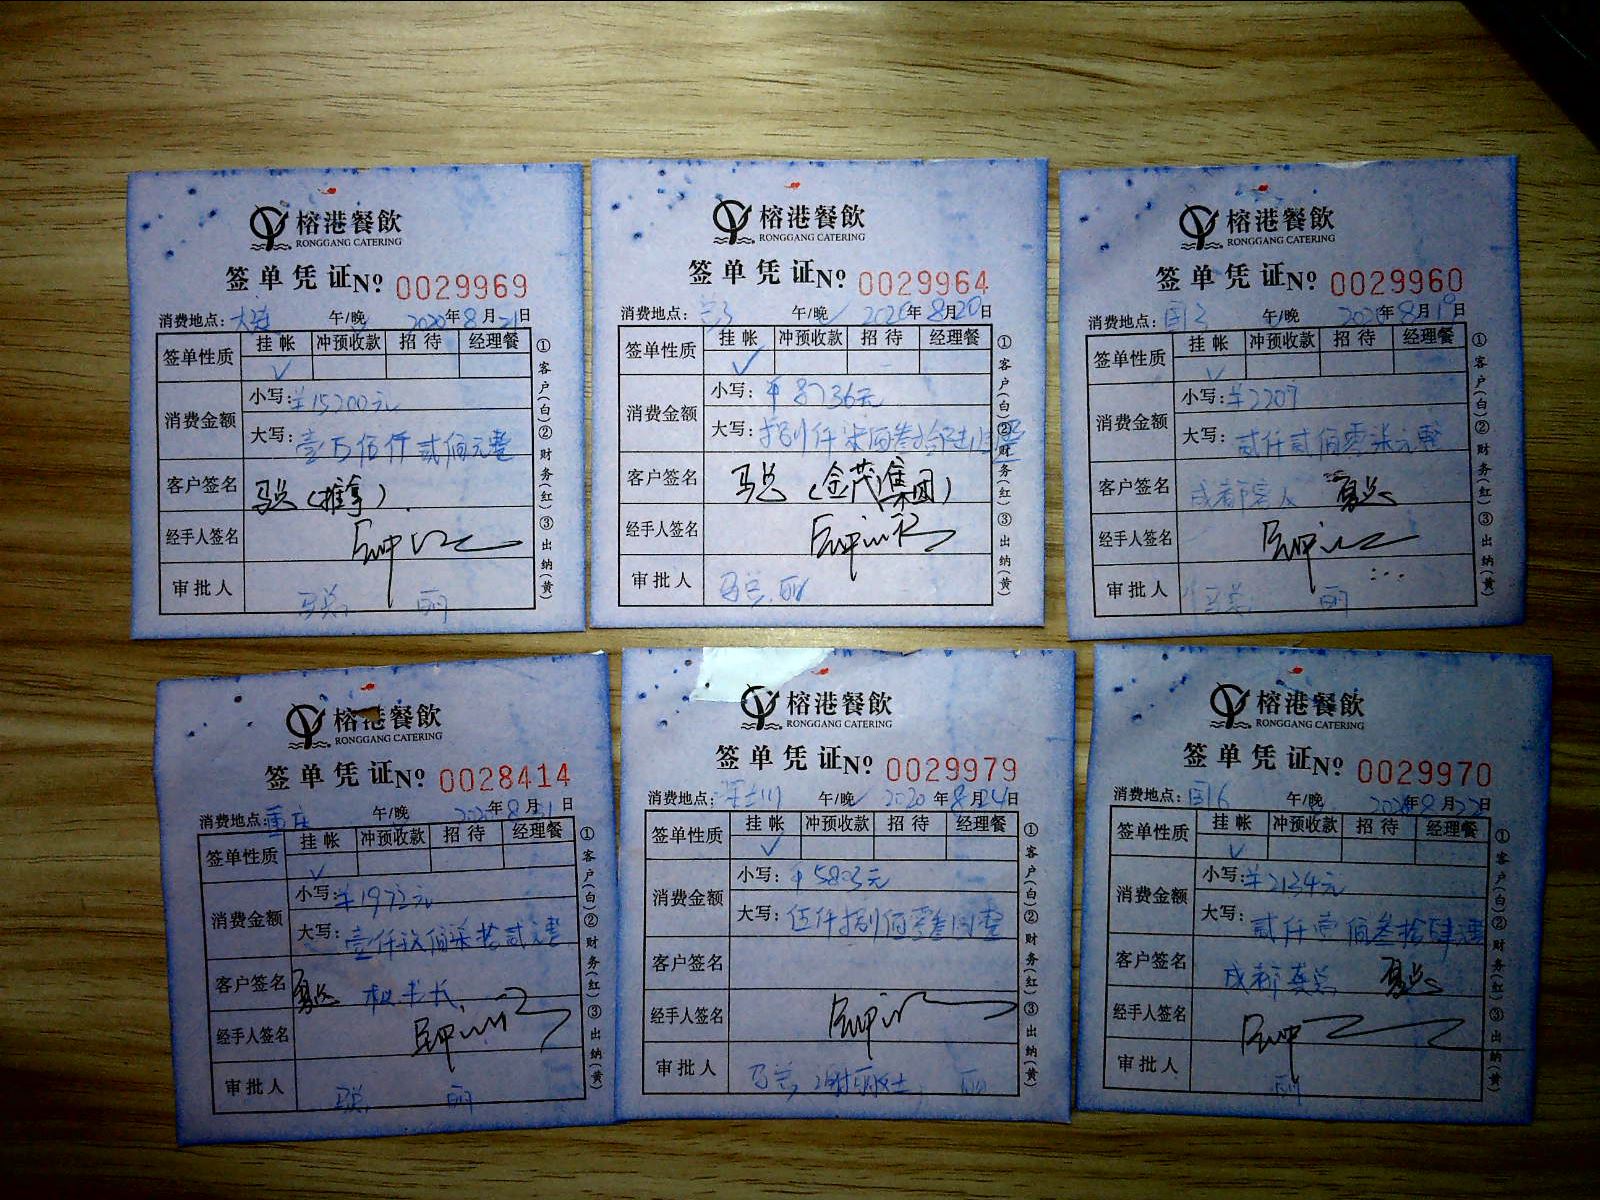 榕港餐飲
RONGGANG CATERING
签单凭证№ 0029969
消费地点: 午/晚 2020年8月21日
签单性质 挂帐 冲预收款 招待 经理餐
✓
消费金额 小写:¥15200元
大写:壹万伍仟贰佰元整
客户签名 马总(推拿)
经手人签名
审批人 马总, 丽
①客户(白)②财务(红)③出纳(黄)
榕港餐飲
RONGGANG CATERING
签单凭证№ 0029964
消费地点: 午/晚 2020年8月20日
签单性质 挂帐 冲预收款 招待 经理餐
✓
消费金额 小写:¥8736元
大写:捌仟柒佰叁拾陆元整
客户签名 马总(金茂集团)
经手人签名
审批人 马总,丽
①客户(白)②财务(红)③出纳(黄)
榕港餐飲
RONGGANG CATERING
签单凭证№ 0029960
消费地点:国3 午/晚 2020年8月19日
签单性质 挂帐 冲预收款 招待 经理餐
✓
消费金额 小写:¥2207
大写:贰仟贰佰零柒元整
客户签名 成都客人
经手人签名
审批人 丽
①客户(白)②财务(红)③出纳(黄)
榕港餐飲
RONGGANG CATERING
签单凭证№ 0028414
消费地点: 午/晚 2020年8月21日
签单性质 挂帐 冲预收款 招待 经理餐
✓
消费金额 小写:¥1972元
大写:壹仟玖佰柒拾贰元整
客户签名 秘书长
经手人签名
审批人 马总, 丽
①客户(白)②财务(红)③出纳(黄)
榕港餐飲
RONGGANG CATERING
签单凭证№ 0029979
消费地点: 午/晚 2020年8月24日
签单性质 挂帐 冲预收款 招待 经理餐
✓
消费金额 小写:¥5803元
大写:伍仟捌佰零叁圆整
客户签名
经手人签名
审批人 马总, 丽
①客户(白)②财务(红)③出纳(黄)
榕港餐飲
RONGGANG CATERING
签单凭证№ 0029970
消费地点:国6 午/晚 2020年8月22日
签单性质 挂帐 冲预收款 招待 经理餐
✓
消费金额 小写:¥2134元
大写:贰仟壹佰叁拾肆元整
客户签名 成都龚总
经手人签名
审批人 丽
①客户(白)②财务(红)③出纳(黄)